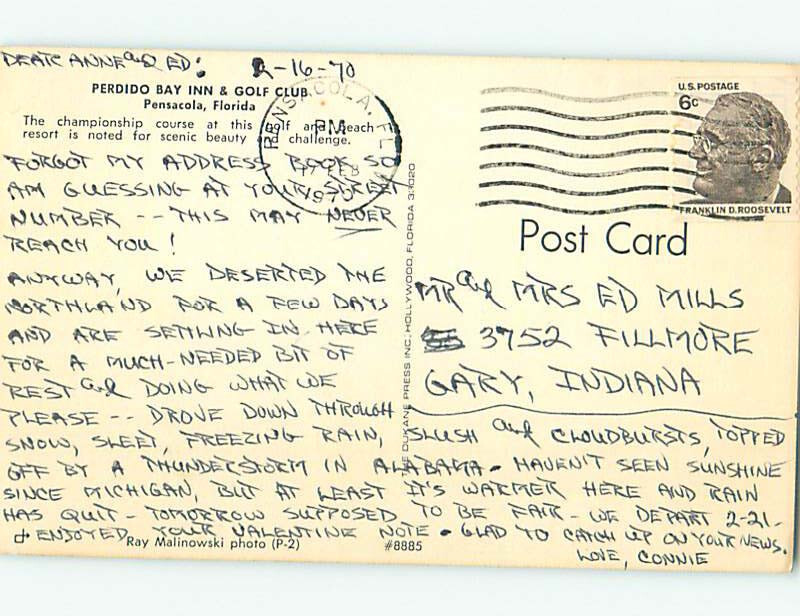 DEAR ANNE and ED: 2-16-70
PERDIDO BAY INN & GOLF CLUB
Pensacola, Florida
The championship course at this golf and beach
resort is noted for scenic beauty and challenge.
FORGOT MY ADDRESS BOOK SO
AM GUESSING AT YOUR STREET
NUMBER -- THIS MAY NEVER
REACH YOU!
ANYWAY, WE DESERTED THE
NORTHLAND FOR A FEW DAYS
AND ARE SETTLING IN HERE
FOR A MUCH-NEEDED BIT OF
REST and DOING WHAT WE
PLEASE -- DROVE DOWN THROUGH
SNOW, SLEET, FREEZING RAIN, SLUSH and CLOUDBURSTS, TOPPED
OFF BY A THUNDERSTORM IN ALABAMA - HAVEN'T SEEN SUNSHINE
SINCE MICHIGAN, BUT AT LEAST IT'S WARMER HERE AND RAIN
HAS QUIT - TOMORROW SUPPOSED TO BE FAIR - WE DEPART 2-21-
+ ENJOYED YOUR VALENTINE NOTE • GLAD TO CATCH UP ON YOUR NEWS.
LOVE, CONNIE
Ray Malinowski photo (P-2)
#8885
THE DUKANE PRESS INC. HOLLYWOOD, FLORIDA 33020
PENSACOLA, FL
PM
17 FEB
1970
U.S. POSTAGE
6c
FRANKLIN D. ROOSEVELT
Post Card
MR and MRS ED MILLS
3752 FILLMORE
GARY, INDIANA